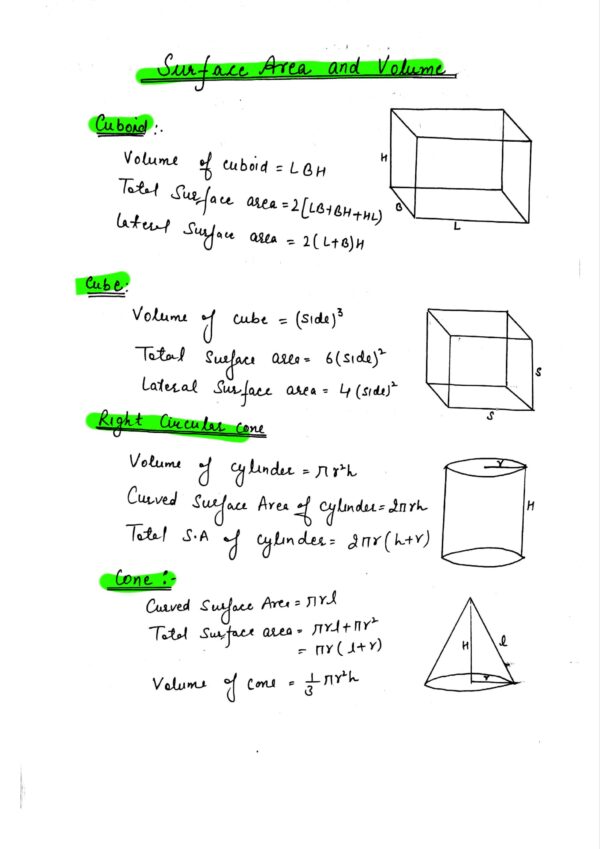 Surface Area and Volume
Cuboid:-
Volume of cuboid = LBH
Total Surface area = 2[LB+BH+HL)
Lateral Surface area = 2(L+B)H
H
B
L
Cube:
Volume of cube = (side)³
Total Surface area = 6(side)²
Lateral Surface area = 4(side)²
S
S
Right Circular cone
Volume of cylinder = πr²h
Curved Surface Area of cylinder = 2πrh
Total S.A of cylinder = 2πr(h+r)
r
H
Cone :-
Curved Surface Area = πrl
Total Surface area = πrl+πr²
= πr(l+r)
Volume of cone = 1/3 πr²h
H
l
r